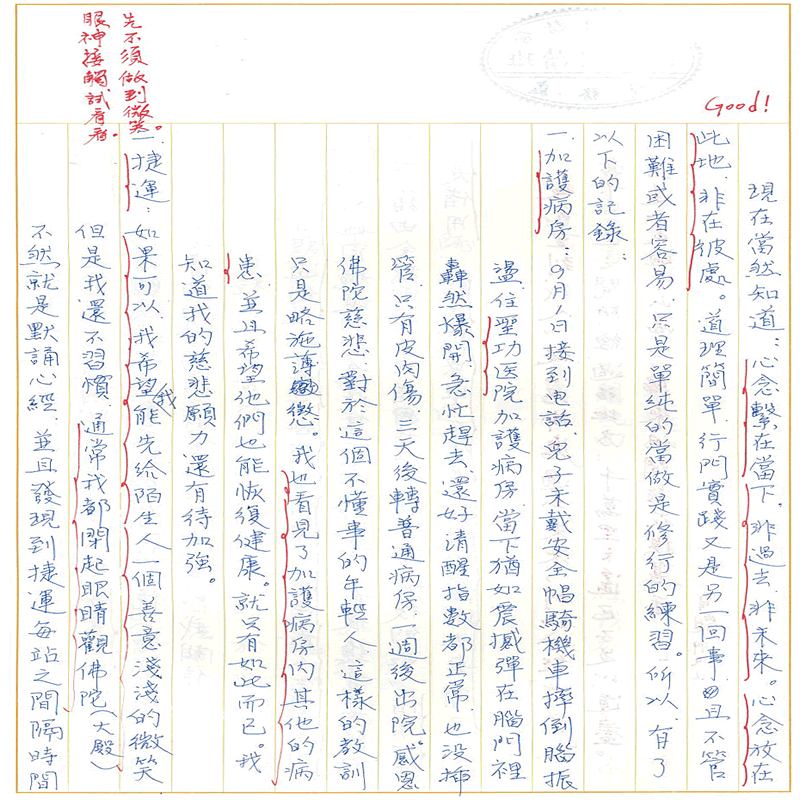 Good!
現在當然知道：心念繫在當下。非過去、非未來。心念放在
此地、非在彼處。道理簡單，行門實踐又是另一回事。且不管
困難或者容易，只是單純的當做是修行的練習。所以，有了
以下的記錄：
一、加護病房：9月1日接到電話，兒子未戴安全帽騎機車摔倒腦振
盪，住聖功医院加護病房，當下猶如震撼彈在腦門裡
轟然爆開，急忙趕去，還好清醒指數都正常，也没插
管，只有皮肉傷，三天後轉普通病房，一週後出院。感恩
佛院慈悲，對於這個不懂事的年輕人，這樣的教訓
只是略施薄懲。我也看見了加護病房内其他的病
患，並且希望他們也能恢復健康。就只有如此而已。我
知道我的慈悲願力，還有待加強。
二、捷運：如果可以，我希望我能先給陌生人一個善意淺淺的微笑
但是我還不習慣，通常我都閉起眼睛觀佛院（大殿）
不然就是默誦心經，並且發現到捷運每站之間隔時間
先不須做到微笑。
眼神接觸試看看。